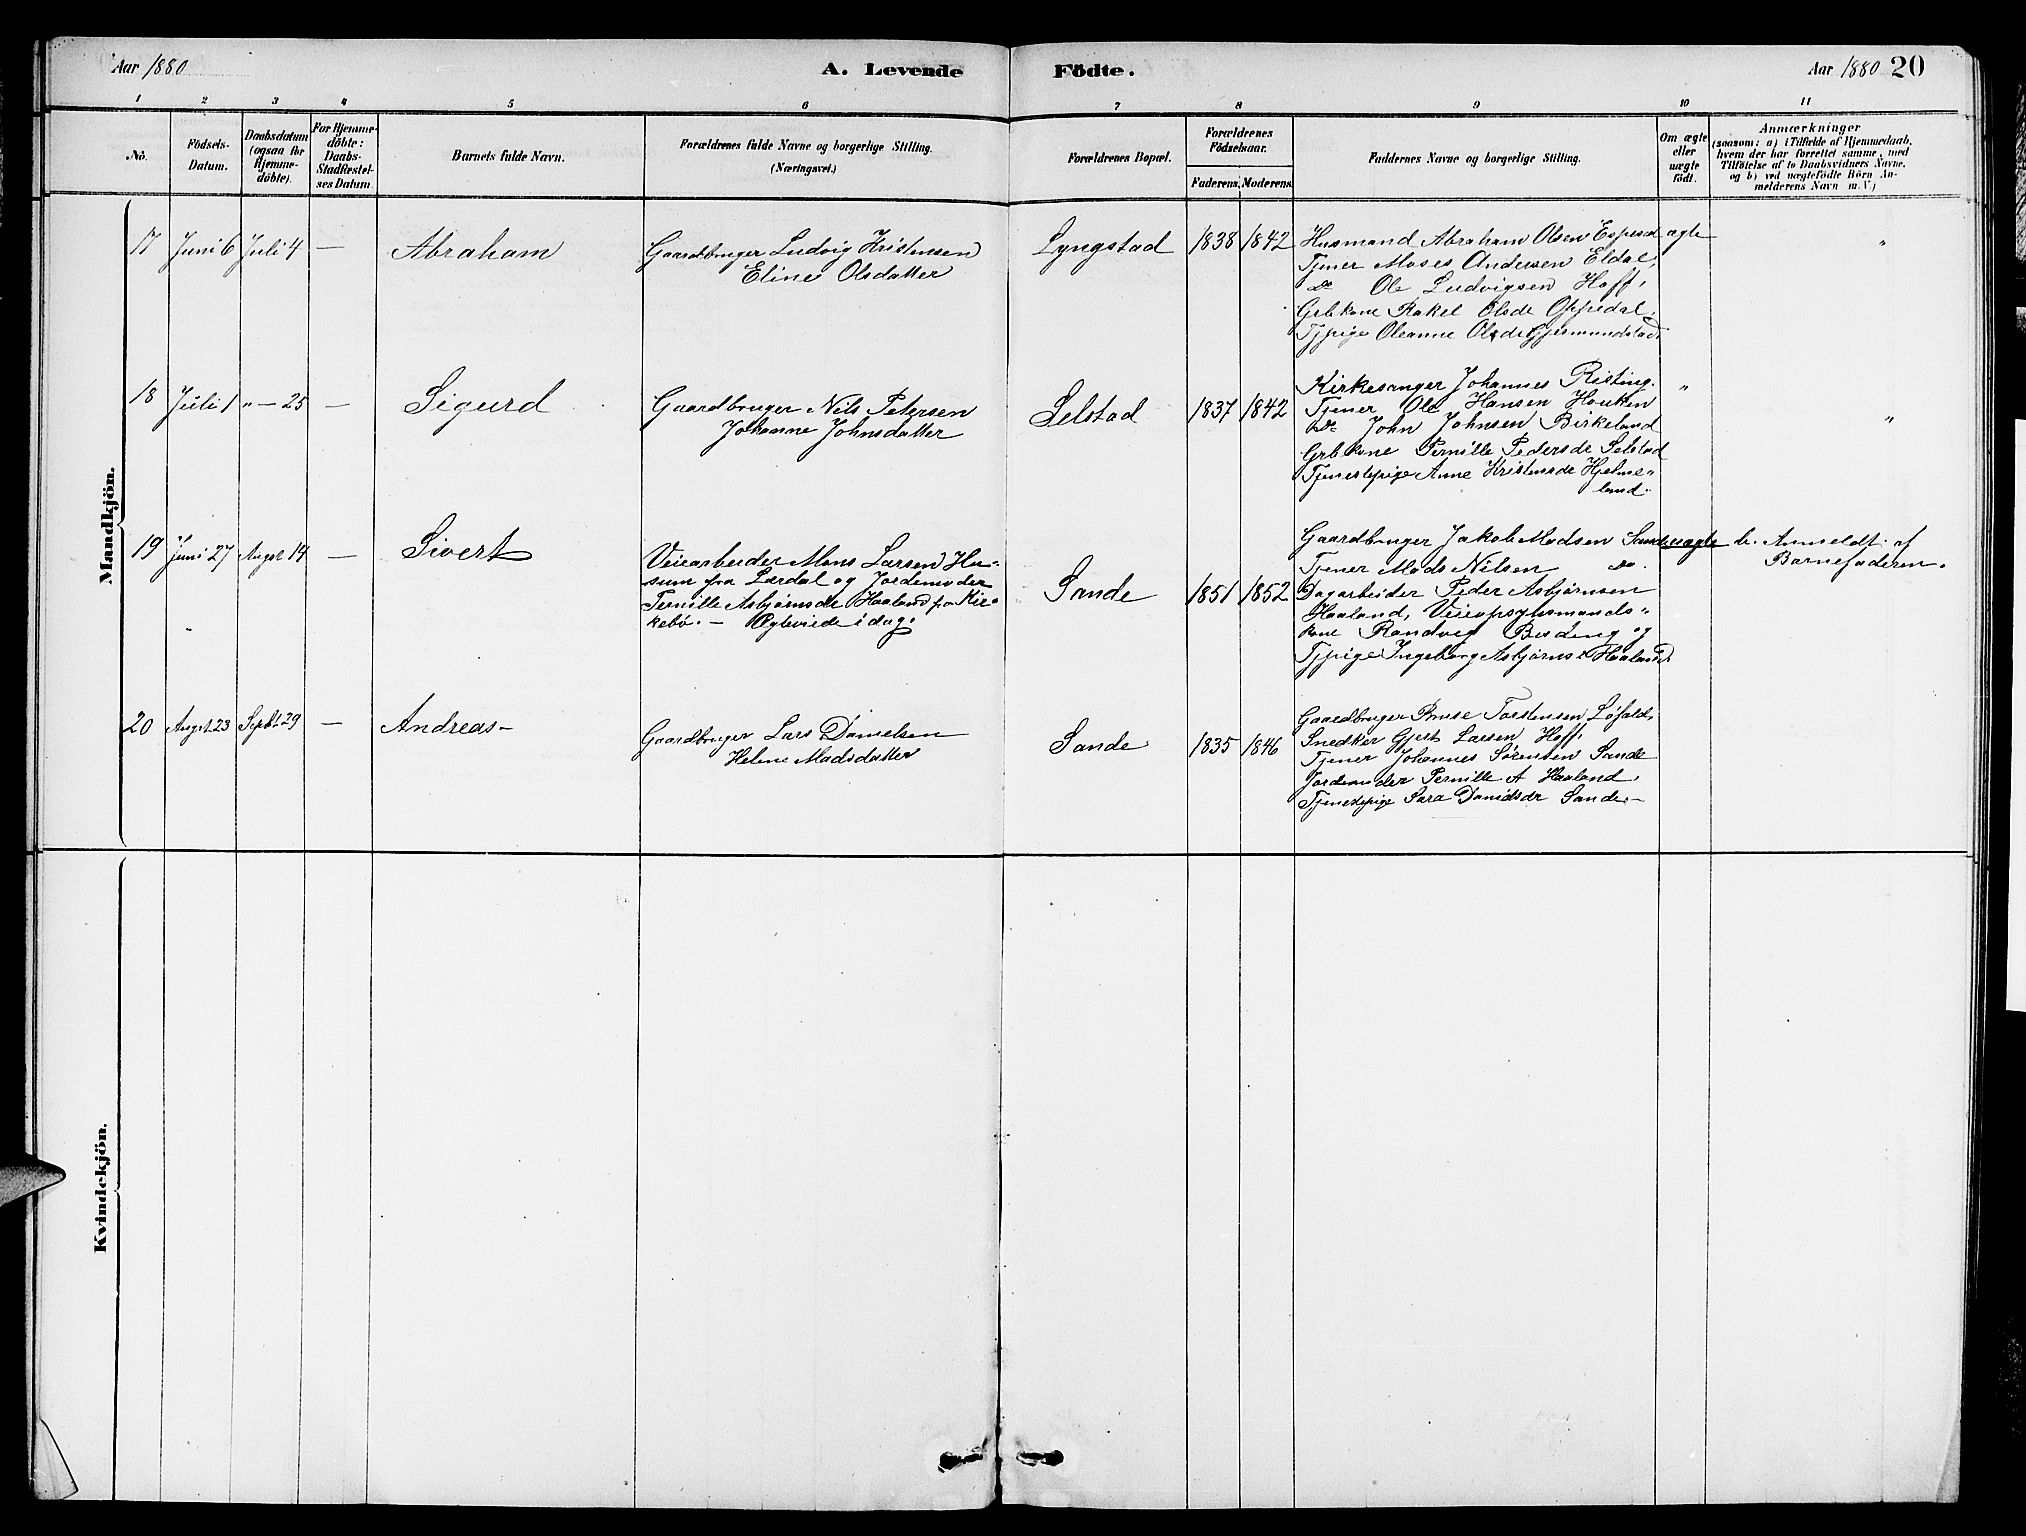 Aar 1880
A. Levende Födte.
Aar 1880 20
1 2 3 4 5 6 7 8 9 10 11
No.
Födsels-Datum.
Daabsdatum (ogsaa for Hjemme-döbte).
For Hjemme-döbte: Daabs-Stadfæstel-ses Datum.
Barnets fulde Navn.
Forældrenes fulde Navne og borgerlige Stilling.
(Næringsvei.)
Forældrenes Bopæl.
Forældrenes Födselsaar.
Faderens. Moderens.
Faddernes Navne og borgerlige Stilling.
Om ægte eller uægte födt.
Anmærkninger
(saasom: a) i Tilfælde af Hjemmedaab, hvem der har forrettet samme, med Tilföielse af to Daabsvidners Navne, og b) ved uægtefödte Börn An-melderens Navn m. V.)
Mandkjön.
17 Juni 6 Juli 4 — Abraham
Gaardbruger Ludvig Kristensen
Eline Olsdatter
Lyngstad 1838 1842
Husmand Abraham Olsen Espesd
Tjener Moses Andersen Eldal,
Do Ole Ludvigsen Hoff,
Grbkone Rakel Olsdr Oppedal,
Tjpige Oleanne Olsdr Gjermundstad.
ægte "
18 Juli 1 " — 25 — Sigurd
Gaardbruger Nils Petersen
Johanne Johnsdatter
Selstad 1837 1842
Kirkesanger Johannes Risting.
Tjener Ole Hansen Houken
Do John Johnsen Birkeland
Grbkone Pernille Pedersdr Selstad
Tjenestepige Anne Kristensdr Hjelme-
land.
" "
19 Juni 27 Augst 14 — Sivert
Veiearbeider Mons Larsen Hu-
sum fra Lærdal og Jordemoder
Pernille Asbjørnsdr Haaland fra Kir-
kebö. — Ægteviede i dag.
Sande 1851 1852
Gaardbruger Jakob Madsen Sande
Tjener Mads Nilsen Do.
Dagarbeider Peder Asbjørnsen
Haaland, Veieopsynsmands-
kone Randveg og
Tjpige Ingeborg Asbjørnsdr Haaland
uægte b. Anmeldt af
Barnefaderen.
20 Augst 23 Septbr 29 — Andreas —
Gaardbruger Lars Danielsen
Helene Madsdatter
Sande 1835 1846
Gaardbruger Torstensen Løfald,
Snedker Gjert Larsen Hoff,
Tjener Johannes Sørensen Sande
Jordemoder Pernille A Haaland,
Tjenestepige Sara Davidsdr Sande. —
Kvindekjön.